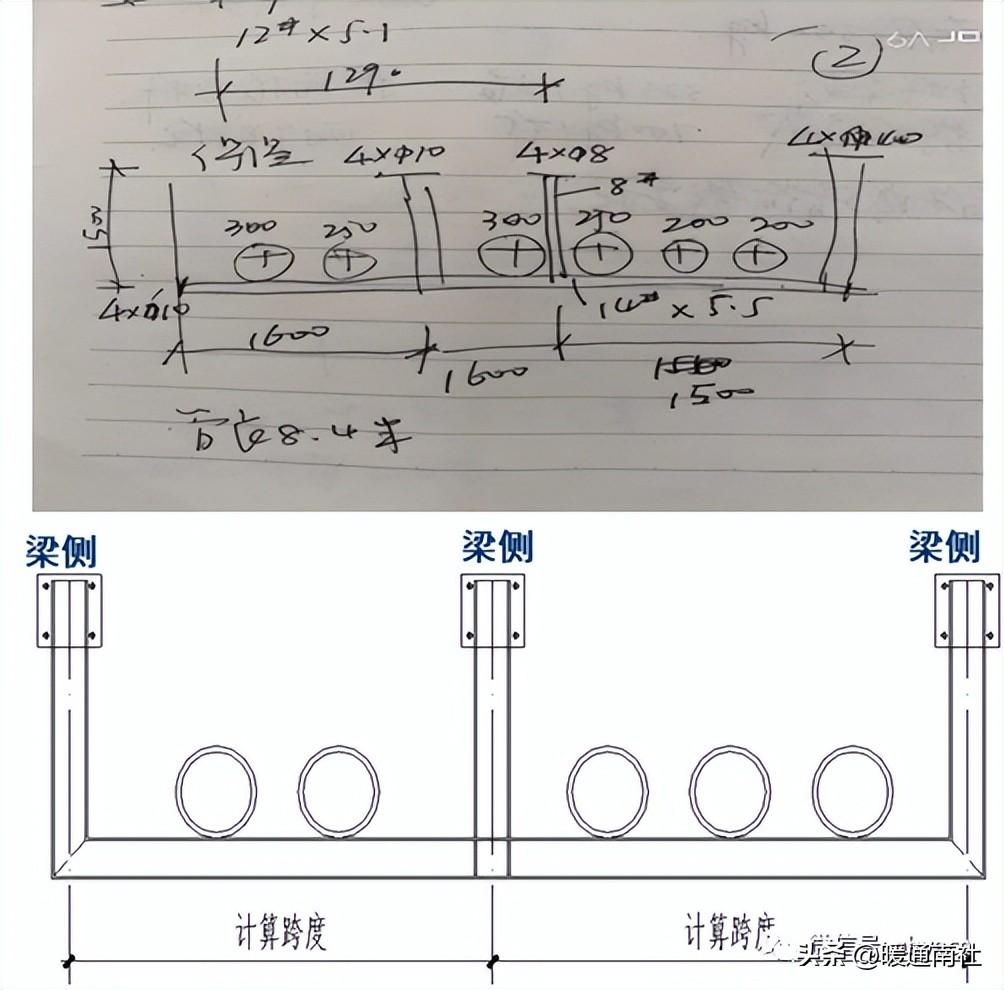 12# × 5.1
2
129.
保温 4×φ10 4×φ8 4×φ10
8#
1500
300 250 300 250 200 200
4×φ10
14# × 5.5
1600
1600
1500
管长8.4米
梁侧 梁侧 梁侧
计算跨度 计算跨度
头条 @暖通南社